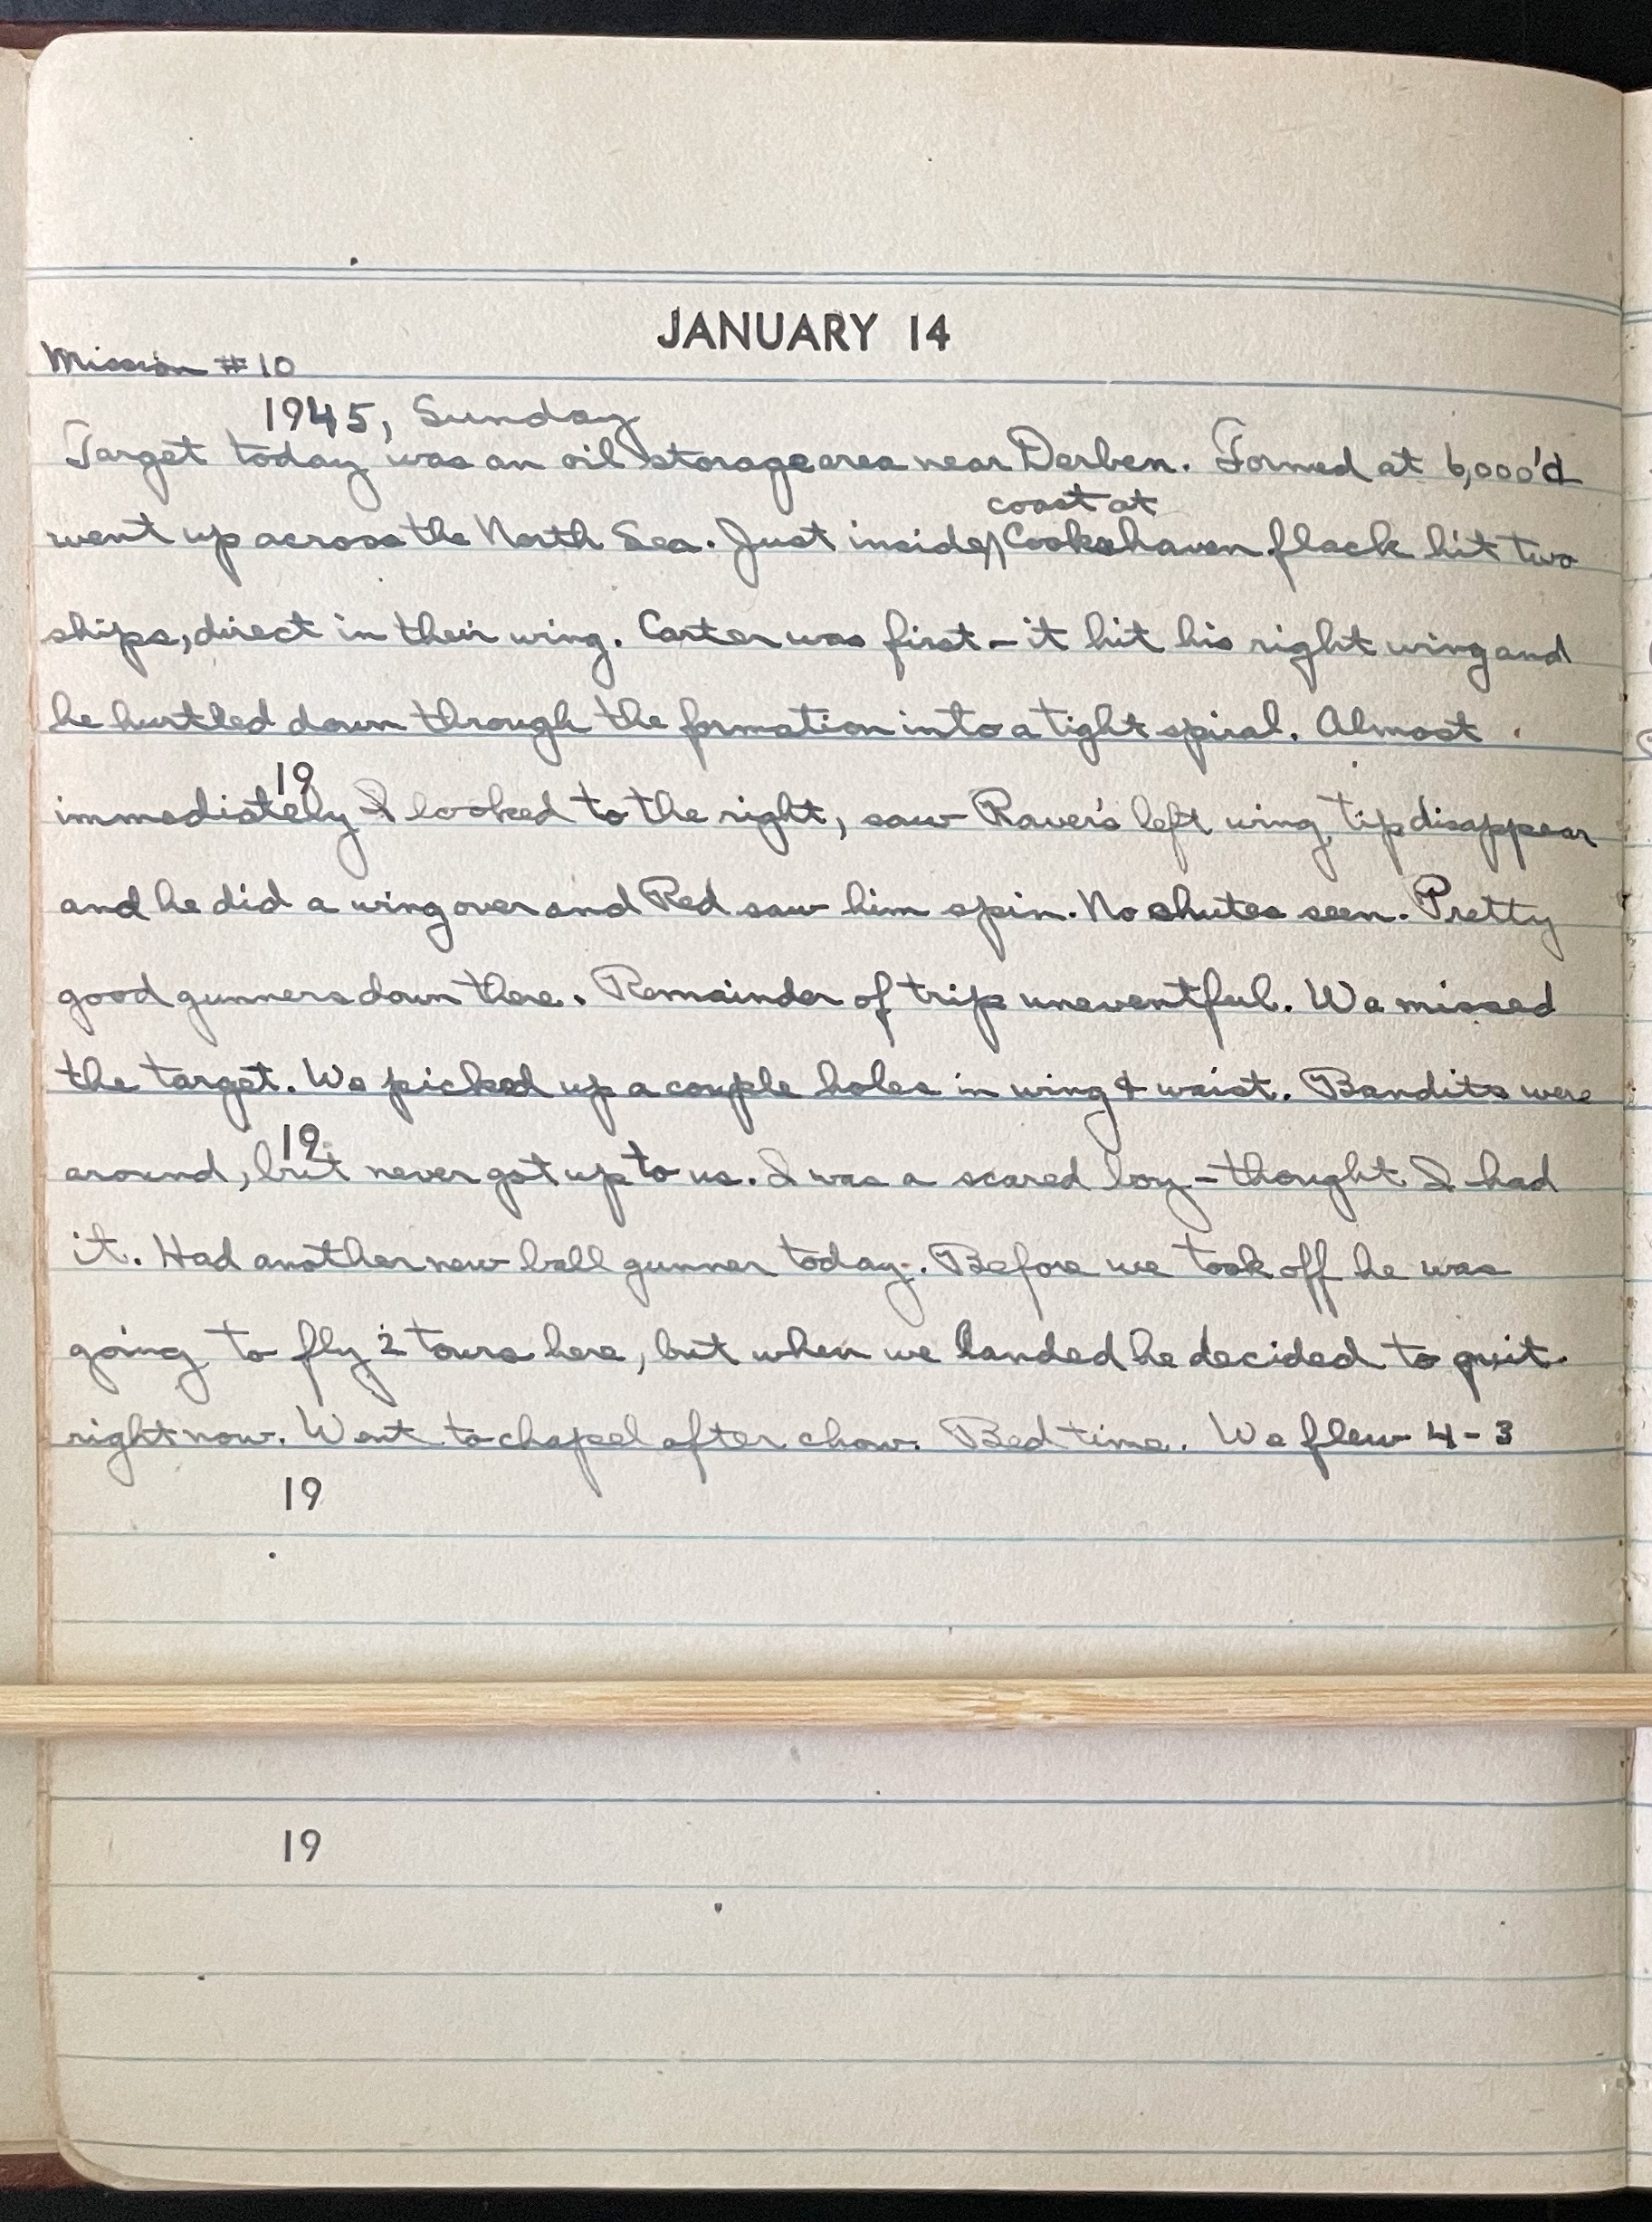 JANUARY 14
Mission #10
1945, Sunday
Target today was an oil storage area near Derben. Formed at 6,000' &
coast at
went up across the North Sea. Just inside Cookshaven flack hit two
ships, direct in their wing. Carter was first - it hit his right wing and
he hurtled down through the formation into a tight spiral. Almost
19
immediately I looked to the right, saw Raver's left wing tip disappear
and he did a wing over and Red saw him spin. No shutes seen. Pretty
good gunners down there. Remainder of trip uneventful. We missed
the target. We picked up a couple holes in wing & waist. Bandits were
19
around, but never got up to us. I was a scared boy - thought I had
it. Had another new ball gunner today. Before we took off he was
going to fly 2 tours here, but when we landed he decided to quit
right now. Went to chapel after chow. Bed time. We flew 4-3
19
19